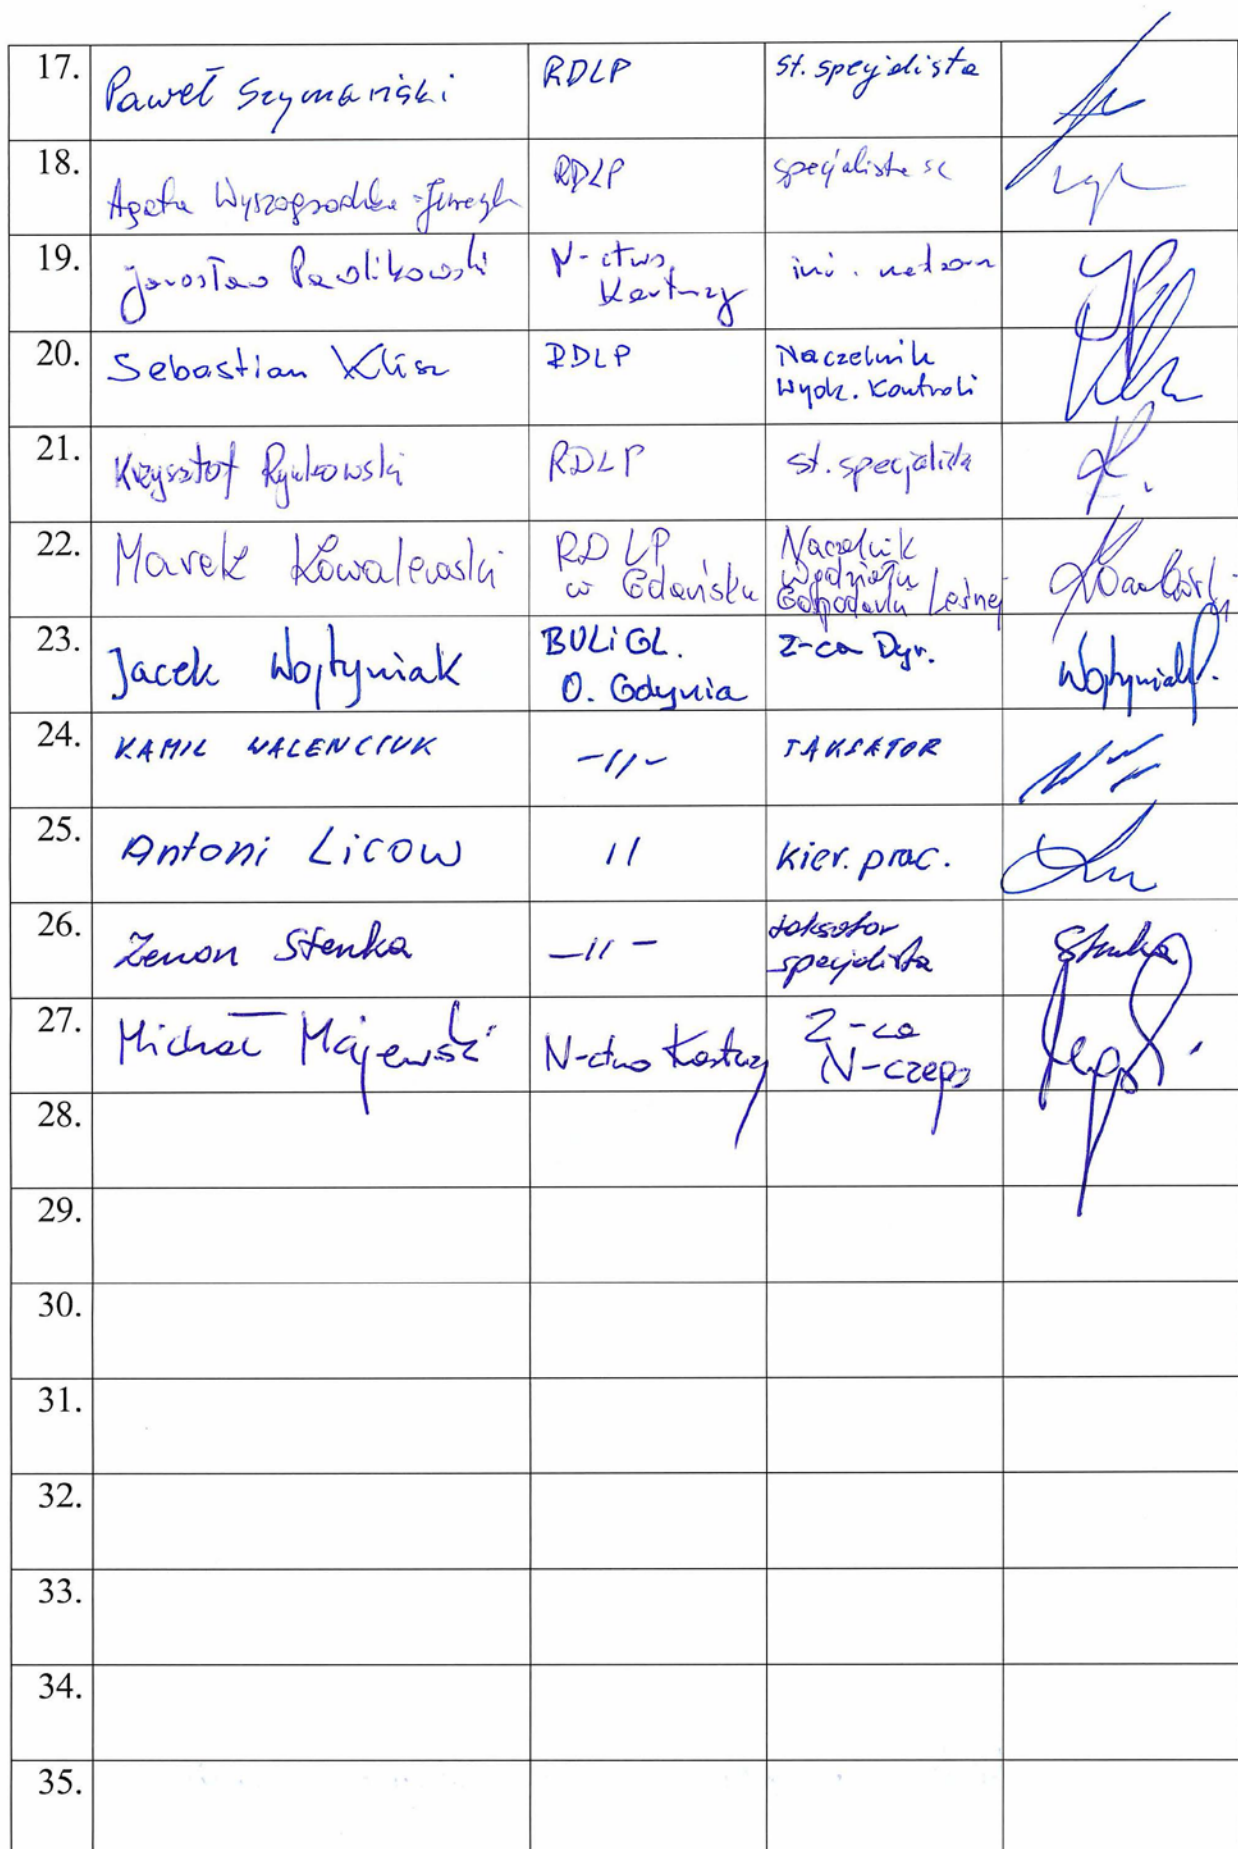 17. Paweł Szymański RDLP st. specjalista
18. Agata Wyszogrodzka RDLP specjalista sc
19. Jarosław Pawlikowski N-ctwo Kartuzy inż. nadzoru
20. Sebastian Klisz RDLP Naczelnik Wydz. Kontroli
21. Krzysztof Rynkowski RDLP st. specjalista
22. Marek Kowalewski RDLP w Gdańsku Naczelnik Wydziału Gospodarki Leśnej
23. Jacek Wojtyniak BULiGL. O. Gdynia z-ca Dyr. Wojtyniak
24. KAMIL WALENCIUK -11- TAKSATOR
25. Antoni Licow 11 kier. prac.
26. Zenon Stenka -11- taksator specjalista Stenka
27. Michał Majewski N-ctwo Kartuzy Z-ca N-czego
28.
29.
30.
31.
32.
33.
34.
35.